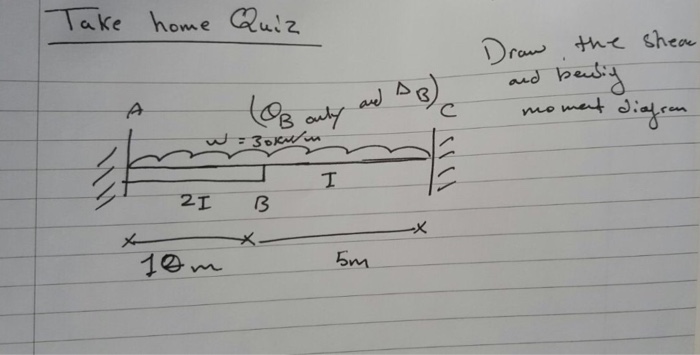 Take home Quiz
Draw the shear
and bendig
moment diagram
A
(θB only and ΔB)
C
w = 30kN/m
2I
B
I
10m
5m